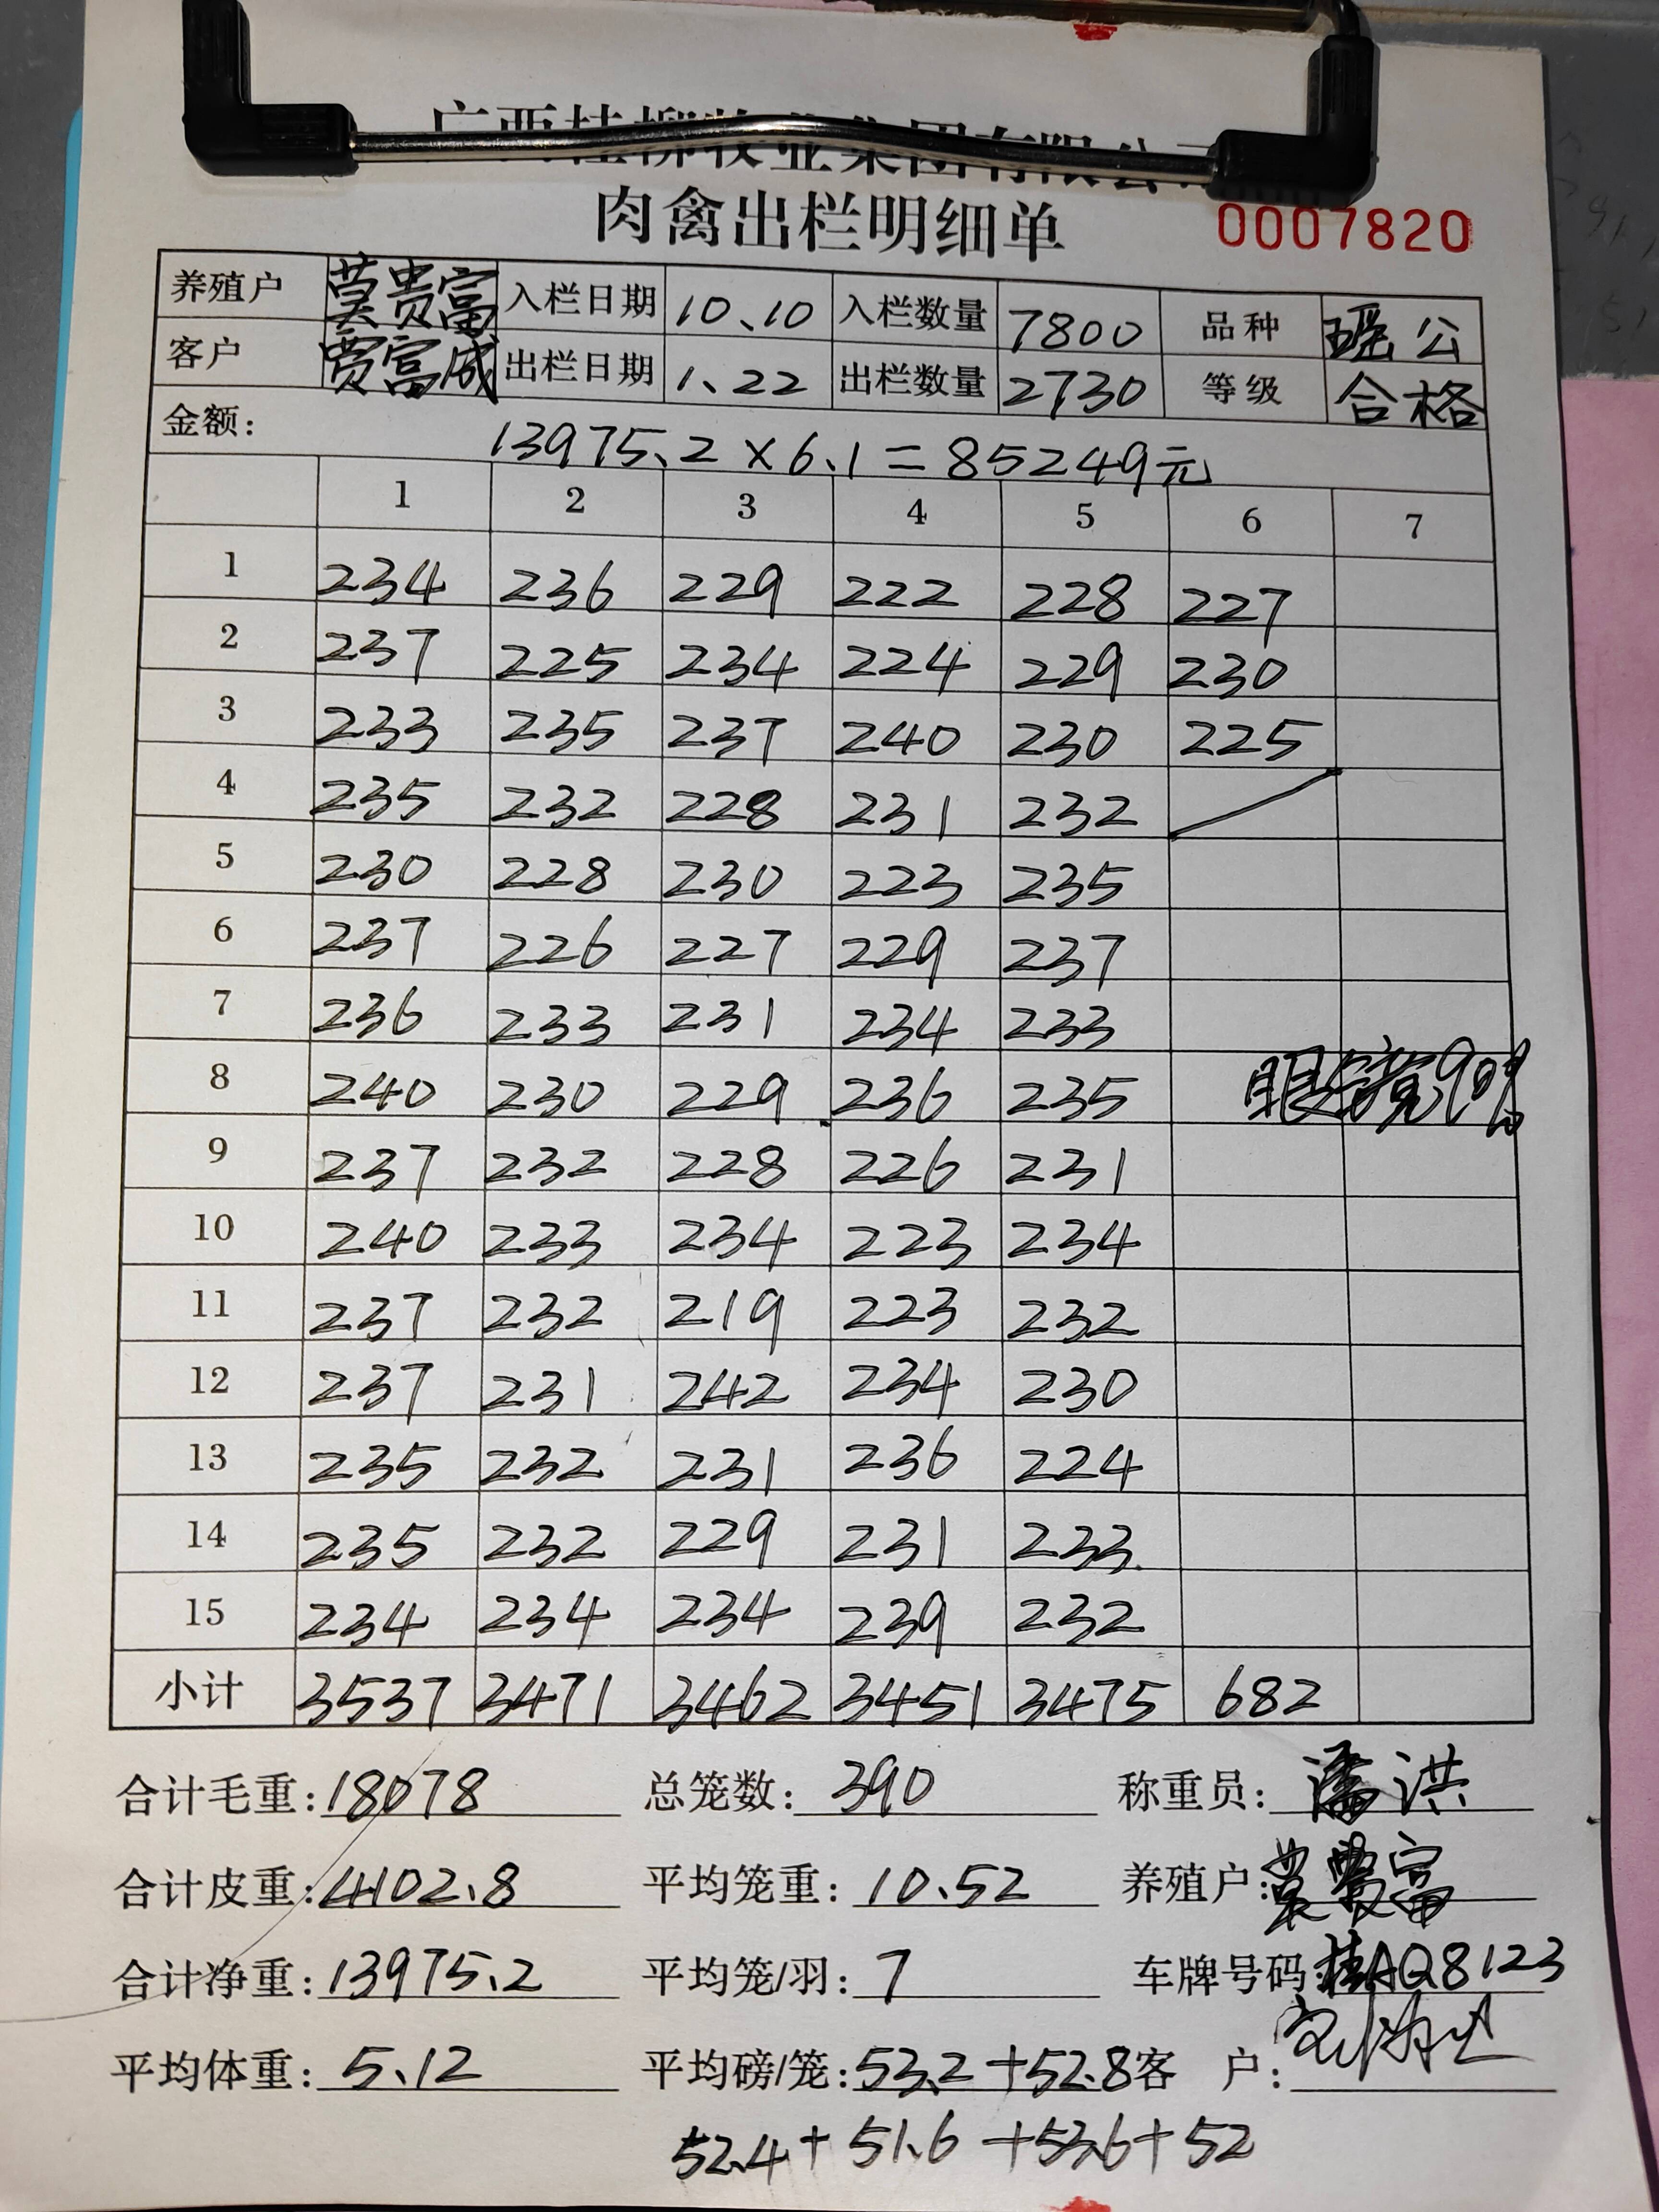 广西桂柳牧业集团有限公司
肉禽出栏明细单 0007820
养殖户 莫贵富 入栏日期 10、10 入栏数量 7800 品种 瑶公
客户 贾富成 出栏日期 1、22 出栏数量 2730 等级 合格
金额: 13975、2×6、1=85249元
1 2 3 4 5 6 7
1 234 236 229 222 228 227
2 237 225 234 224 229 230
3 233 235 237 240 230 225
4 235 232 228 231 232
5 230 228 230 223 235
6 237 226 227 229 237
7 236 233 231 234 233
8 240 230 229 236 235 眼镜90%
9 237 232 228 226 231
10 240 233 234 223 234
11 237 232 219 223 232
12 237 231 242 234 230
13 235 232 231 236 224
14 235 232 229 231 233
15 234 234 234 239 232
小计 3537 3471 3462 3451 3475 682
合计毛重: 18078 总笼数: 390 称重员: 潘洪
合计皮重: 4102、8 平均笼重: 10、52 养殖户: 莫贵富
合计净重: 13975、2 平均笼/羽: 7 车牌号码: 桂AQ8123
平均体重: 5、12 平均磅/笼: 53、2+52、8 客户:
52、4+51、6+53、6+52